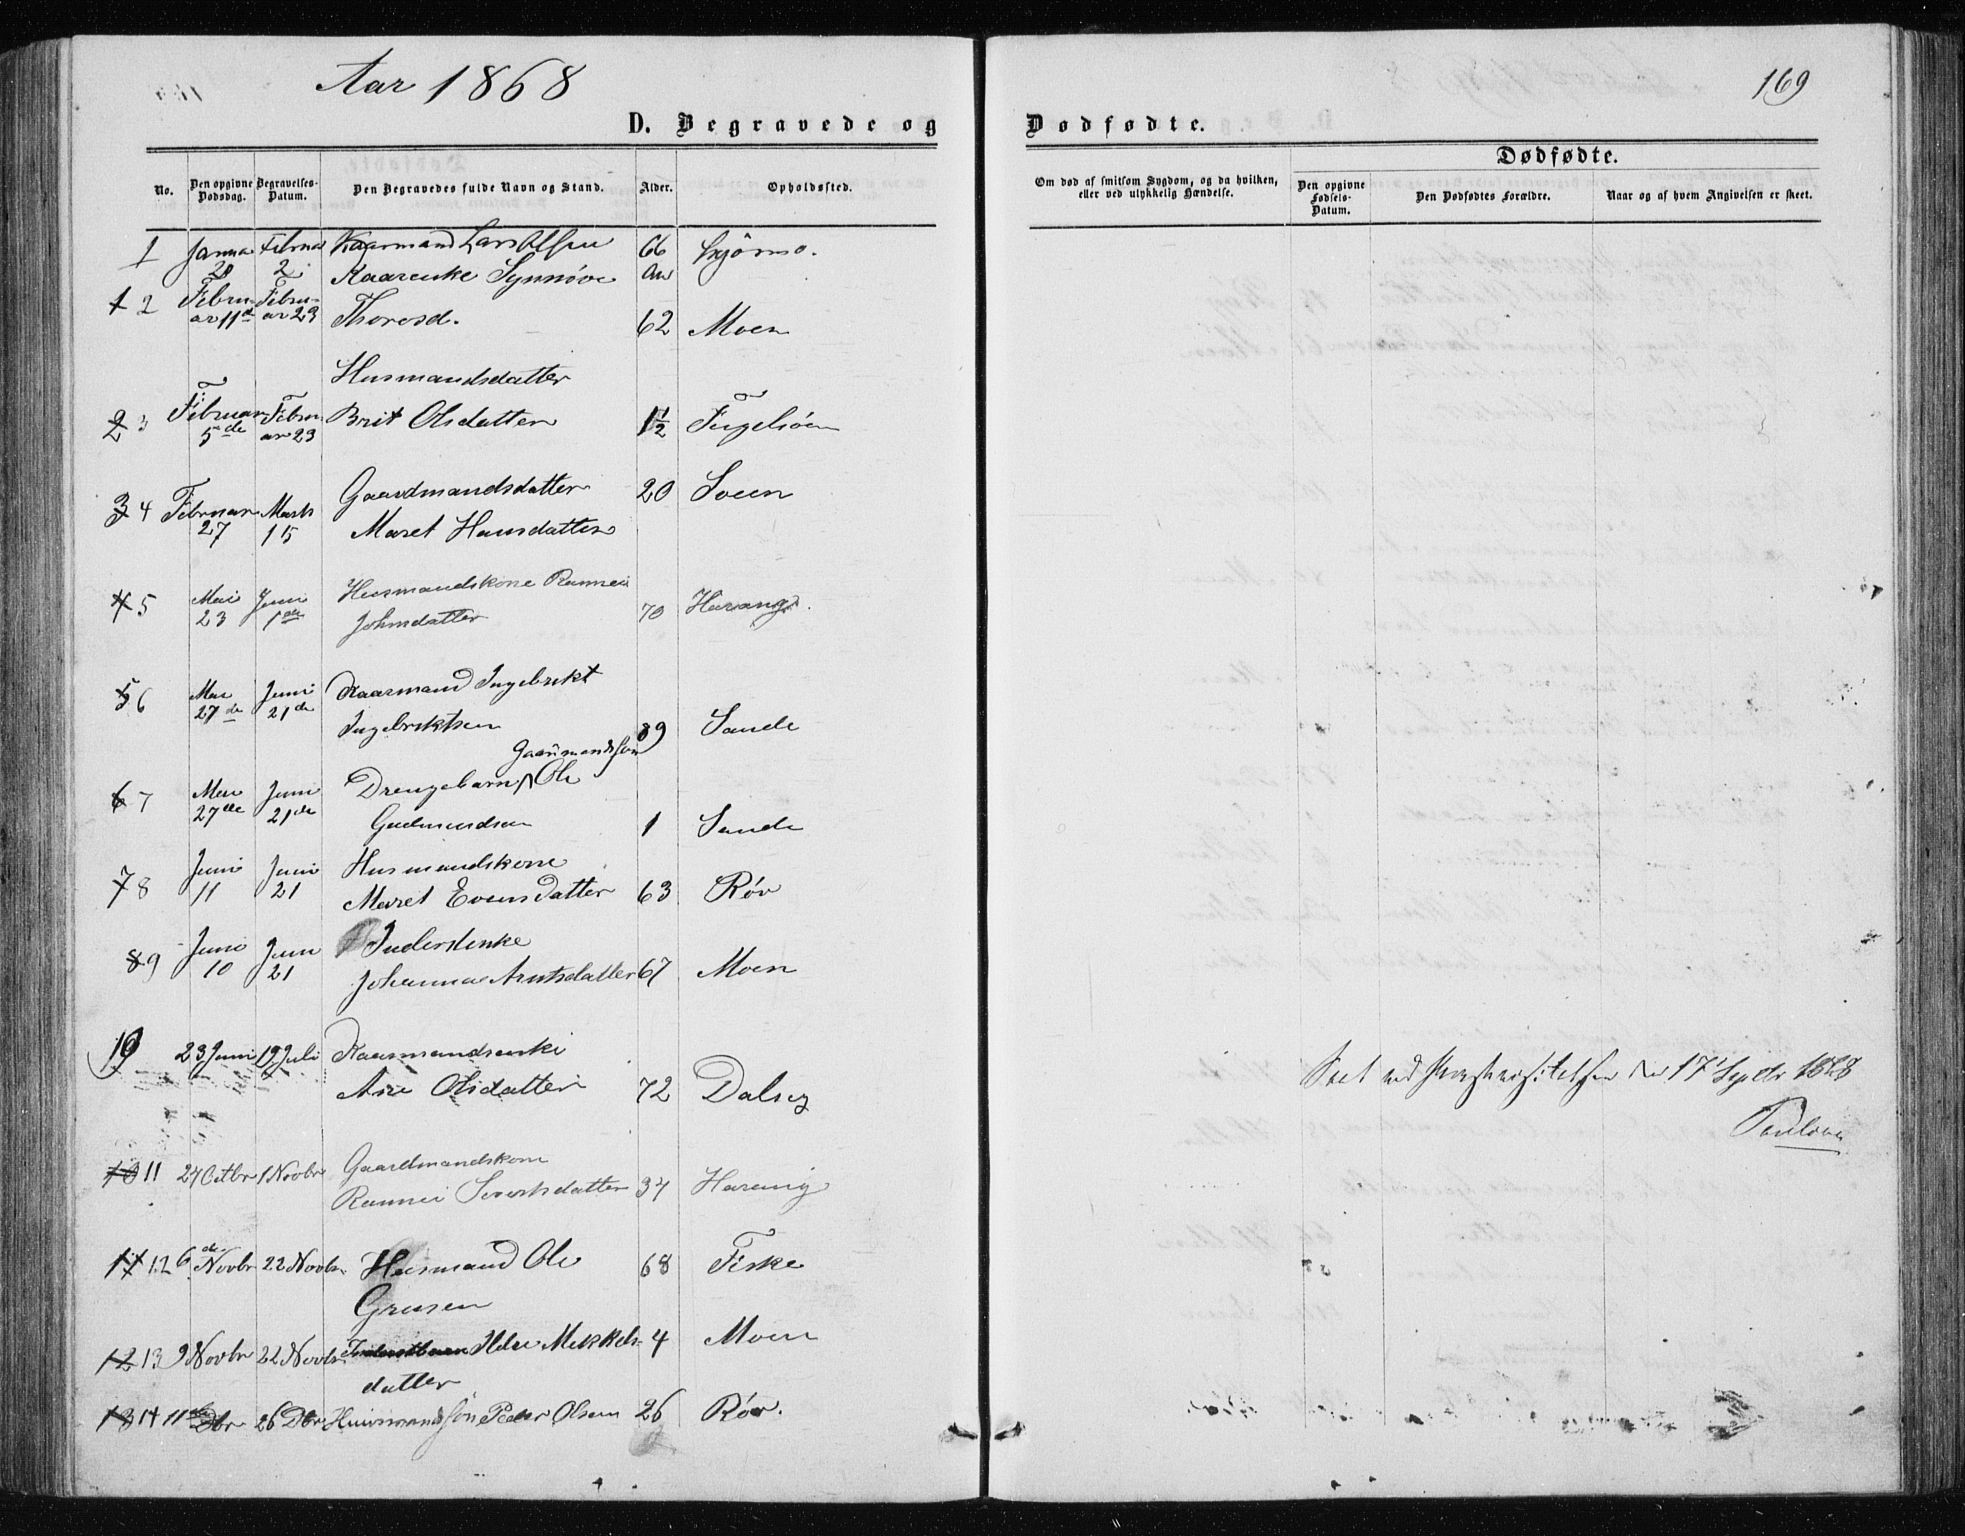 Aar 1868
169
D. Begravede og Dødfødte.
Dødfødte.
No. Den opgivne Dødsdag. Begravelses-Datum. Den Begravedes fulde Navn og Stand. Alder. Opholdssted.
Om død af smitsom Sygdom, og da hvilken, eller ved ulykkelig Hændelse. Den opgivne Fødsels-Datum. Den Dødfødtes Forældre. Naar og af hvem Angivelsen er skeet.
1 Janua Februa Kaarmand Lars Olsen 66
2 Kaarenke Synnøve
1 2 Febru- Febru-
ar 11d ar 23 Thoresd. 62 Moen
Husmandsdatter
2 3 Februar Febru Brit Olsdatter 1½
5de ar 23
Gaardmandsdatter 20 Soen
3 4 Februar Marts
27 15 Maret Hansdatter
4 5 Mai Juni Husmandskone Rannei
23 1de Johnsdatter 70 Harang.
5 6 Mai Juni Kaarmand Ingebrikt
27de 21de Ingebriktsen 89 Sande
Gaardmandssøn
6 7 Mai Juni Drengebarn Ole
27de 21de Gudmundsen 1 Sande
7 8 Juni Juni Husmandskone
11 21 Maret Evensdatter 63 Røv
8 9 Juni Juni Inderstenke
10 21 Johanna Arntsdatter 67 Moen
10 23 Juni 19 Juli Kaarmandsenke
Ane Olsdatter 72 Dalseg
Seet ved Provstevisitatsen den 17 Septbr 1868
10 11 27 Octbr 1 Novbr Gaardmandskone
Rannei Sivertsdatter 34 Harang
11 12 6de Novbr 22 Novbr. Husmand Ole 68 Fiske
12 13 9 Novbr 22 Novbr. Mekkels- 4 Moen
datter
13 14 11de Dbr 26 Dbr Husmandssøn Peder Olsen 26 Røv.